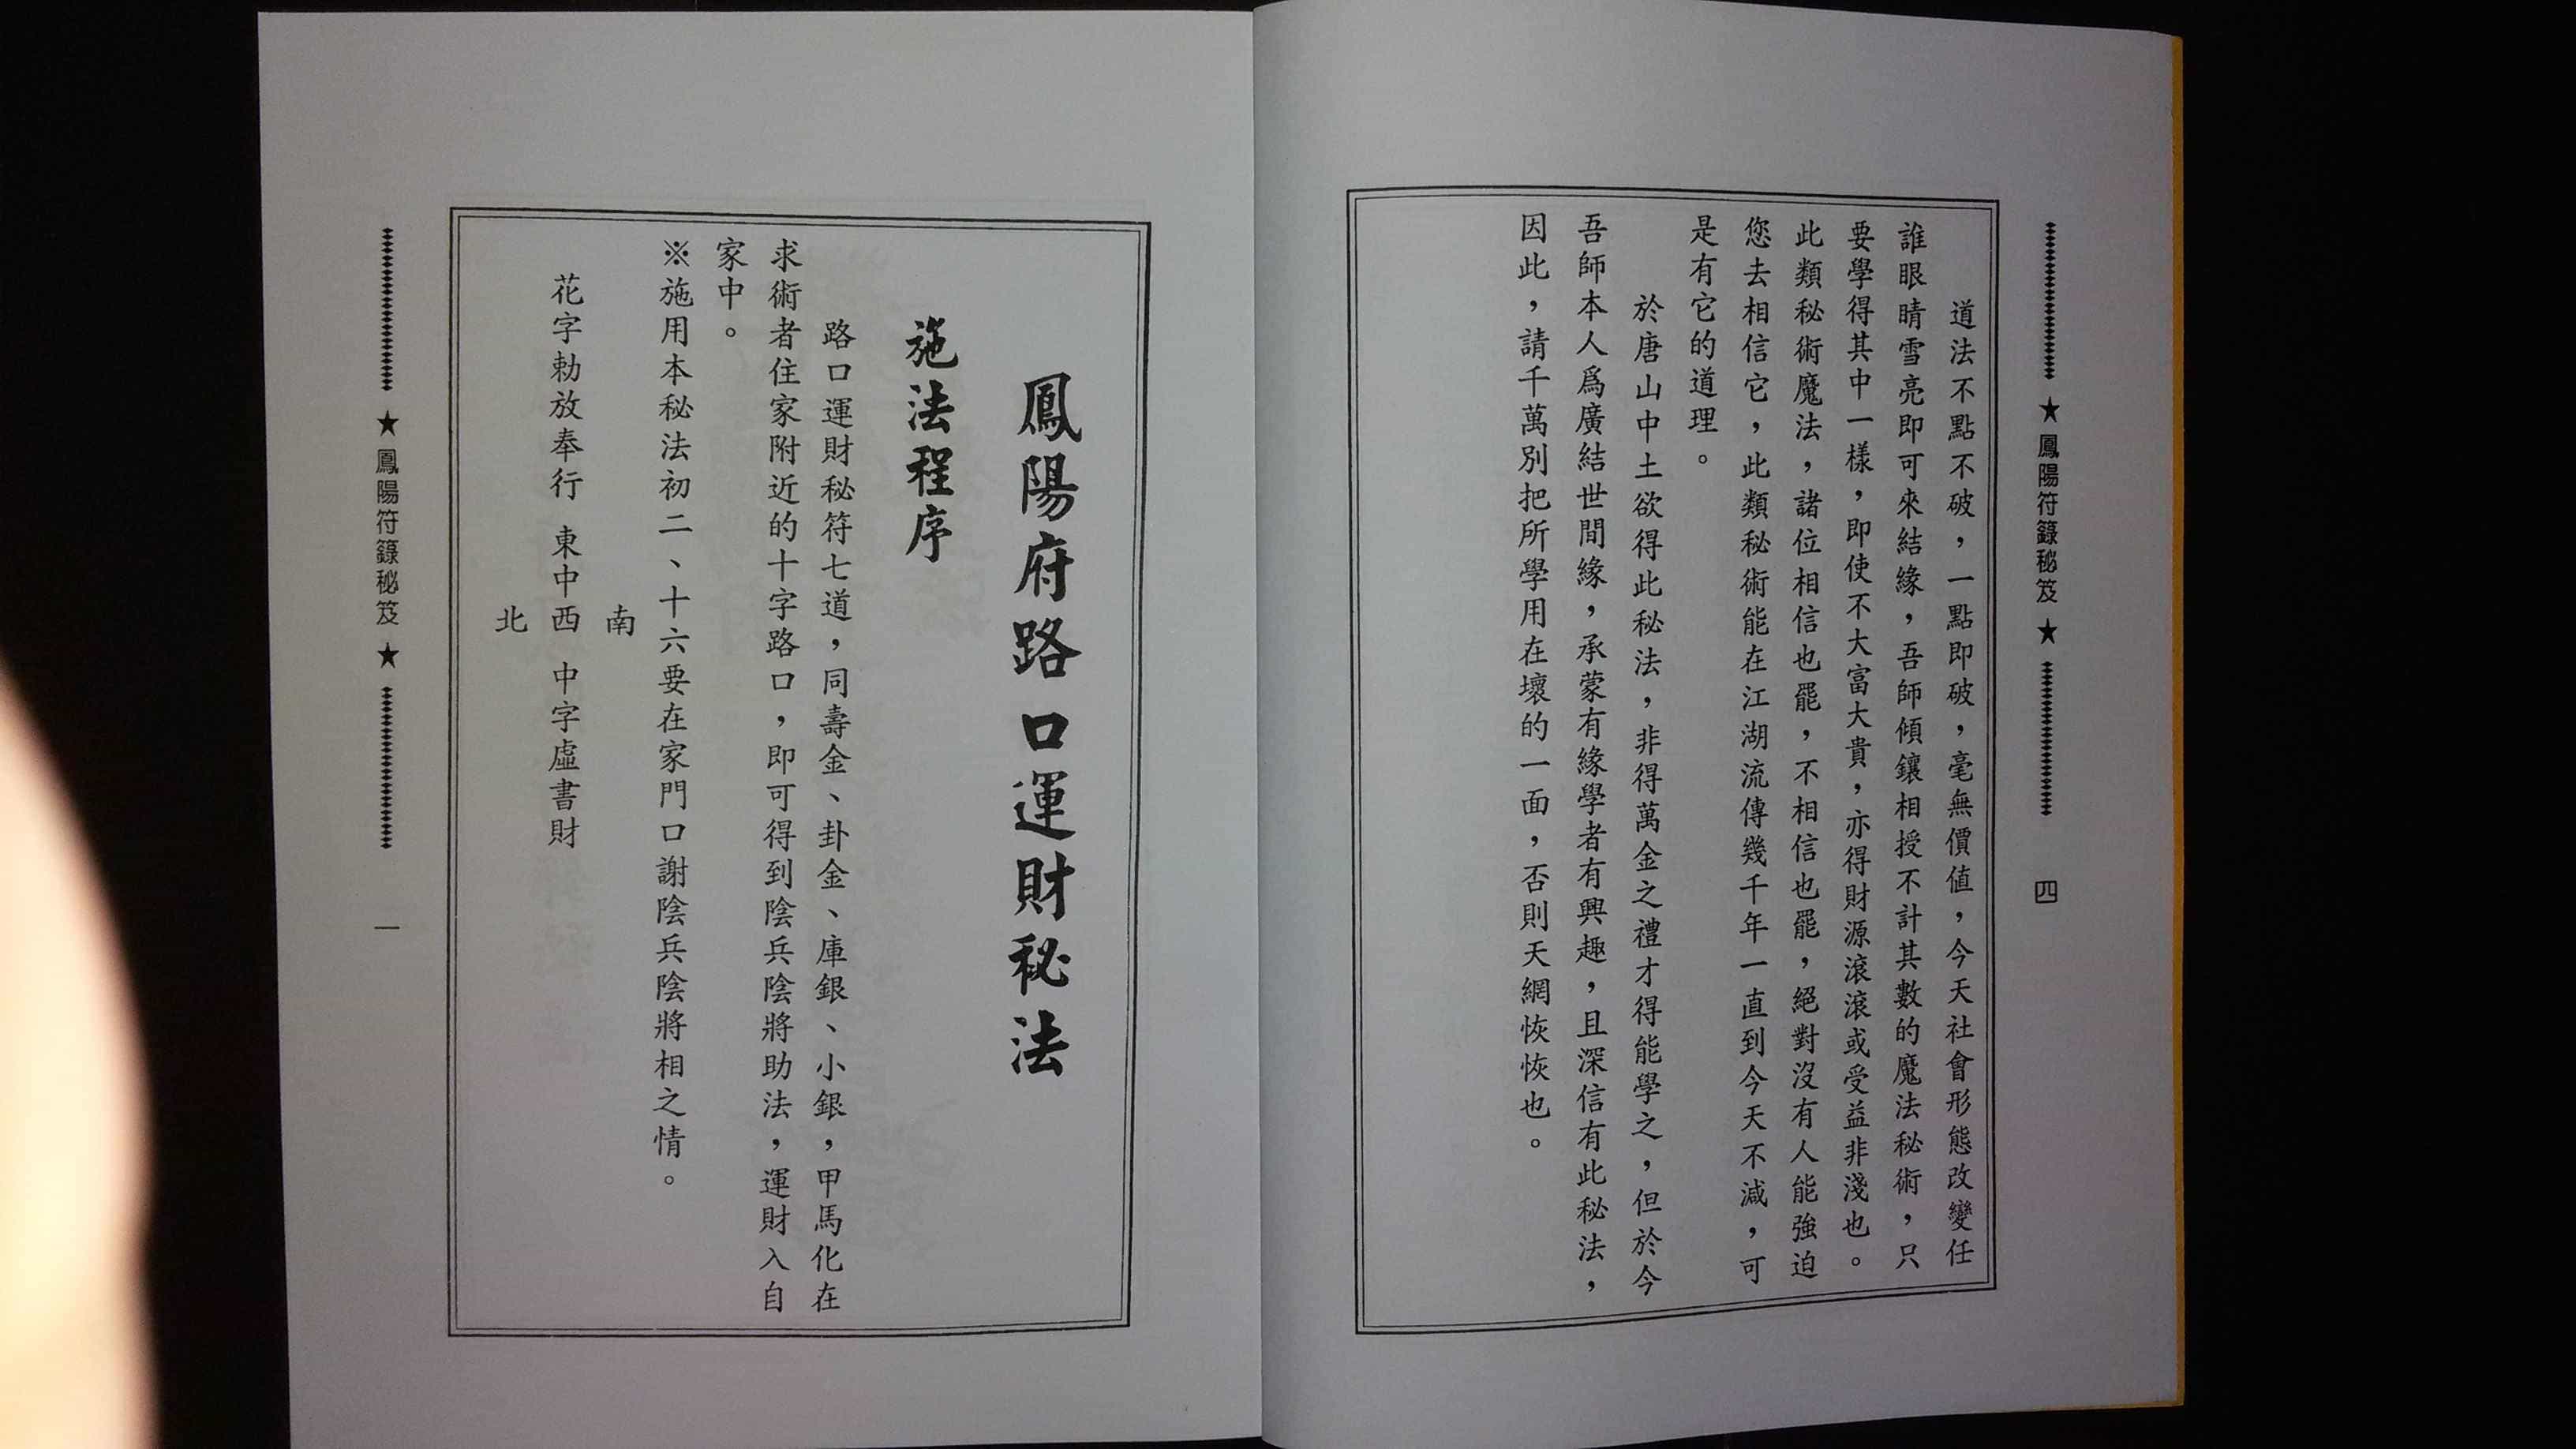 ★鳳陽符籙秘笈★ 四
道法不點不破，一點即破，毫無價值，今天社會形態改變任
誰眼睛雪亮即可來結緣，吾師傾鑲相授不計其數的魔法秘術，只
要學得其中一樣，即使不大富大貴，亦得財源滾滾或受益非淺也。
此類秘術魔法，諸位相信也罷，不相信也罷，絕對沒有人能強迫
您去相信它，此類秘術能在江湖流傳幾千年一直到今天不減，可
是有它的道理。
於唐山中土欲得此秘法，非得萬金之禮才得能學之，但於今
吾師本人爲廣結世間緣，承蒙有緣學者有興趣，且深信有此秘法，
因此，請千萬別把所學用在壞的一面，否則天網恢恢也。
鳳陽府路口運財秘法
施法程序
路口運財秘符七道，同壽金、卦金、庫銀、小銀，甲馬化在
求術者住家附近的十字路口，即可得到陰兵陰將助法，運財入自
家中。
※施用本秘法初二、十六要在家門口謝陰兵陰將相之情。
南
花字勅放奉行 東中西 中字虛書財
北
★鳳陽符籙秘笈★ 一